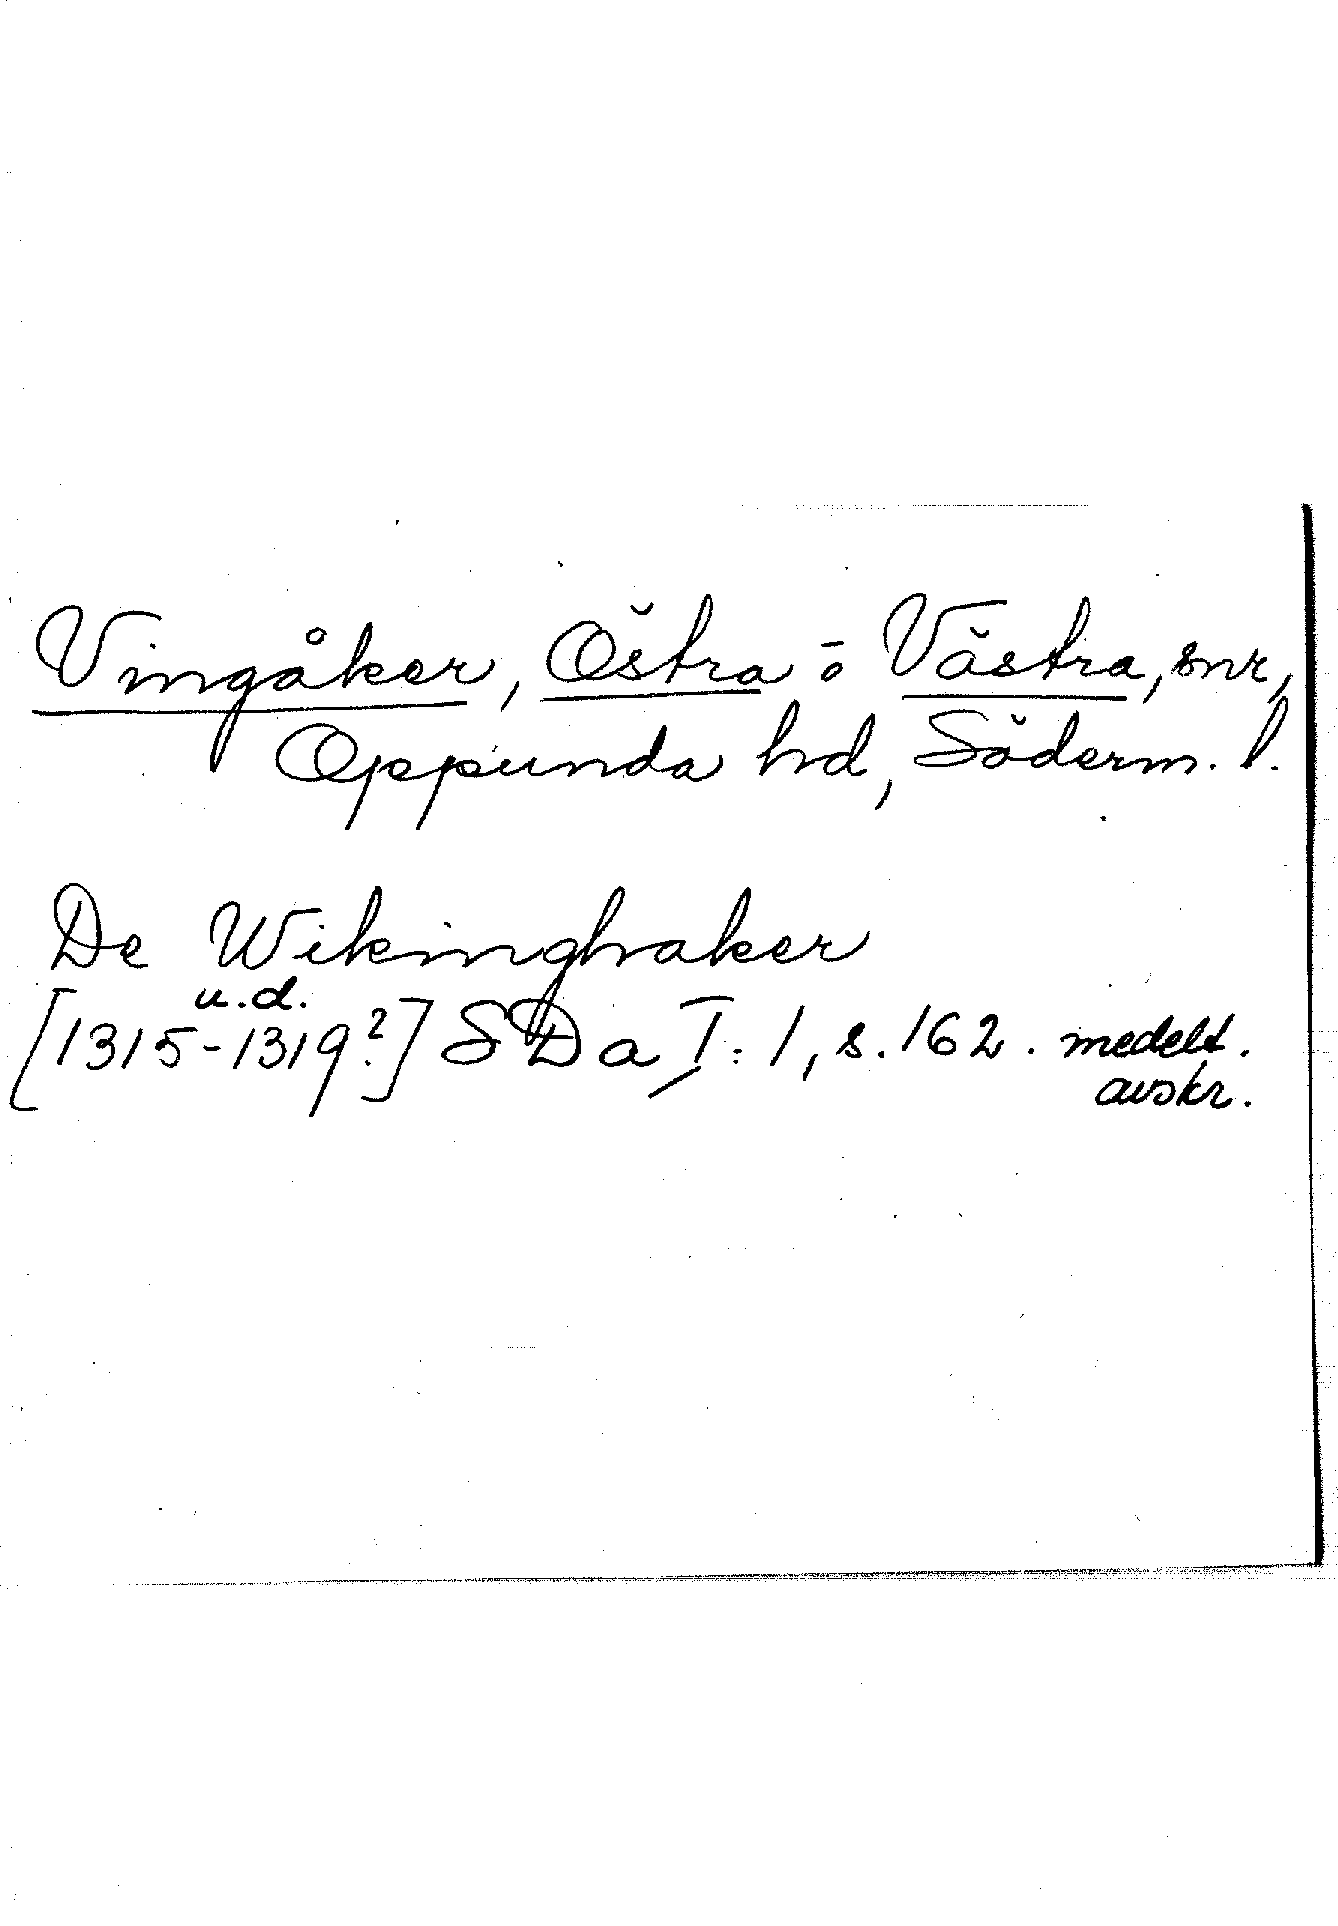 Vingåker, Östra o Västra, snr,
Oppunda hd, Söderm. l.
De Wikinghaker
u.d.
[1315-1319?] SDa I:1, s. 162. medelt.
avskr.